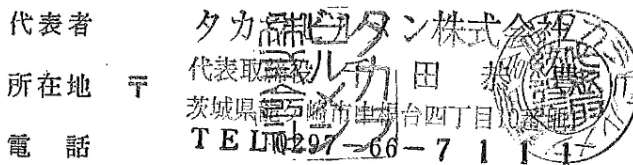 代表者 タカラビルメン株式会社
代表取締役 田
所在地 〒 茨城県龍ケ崎市中根台四丁目10番地
電話 TEL 0297-66-7111